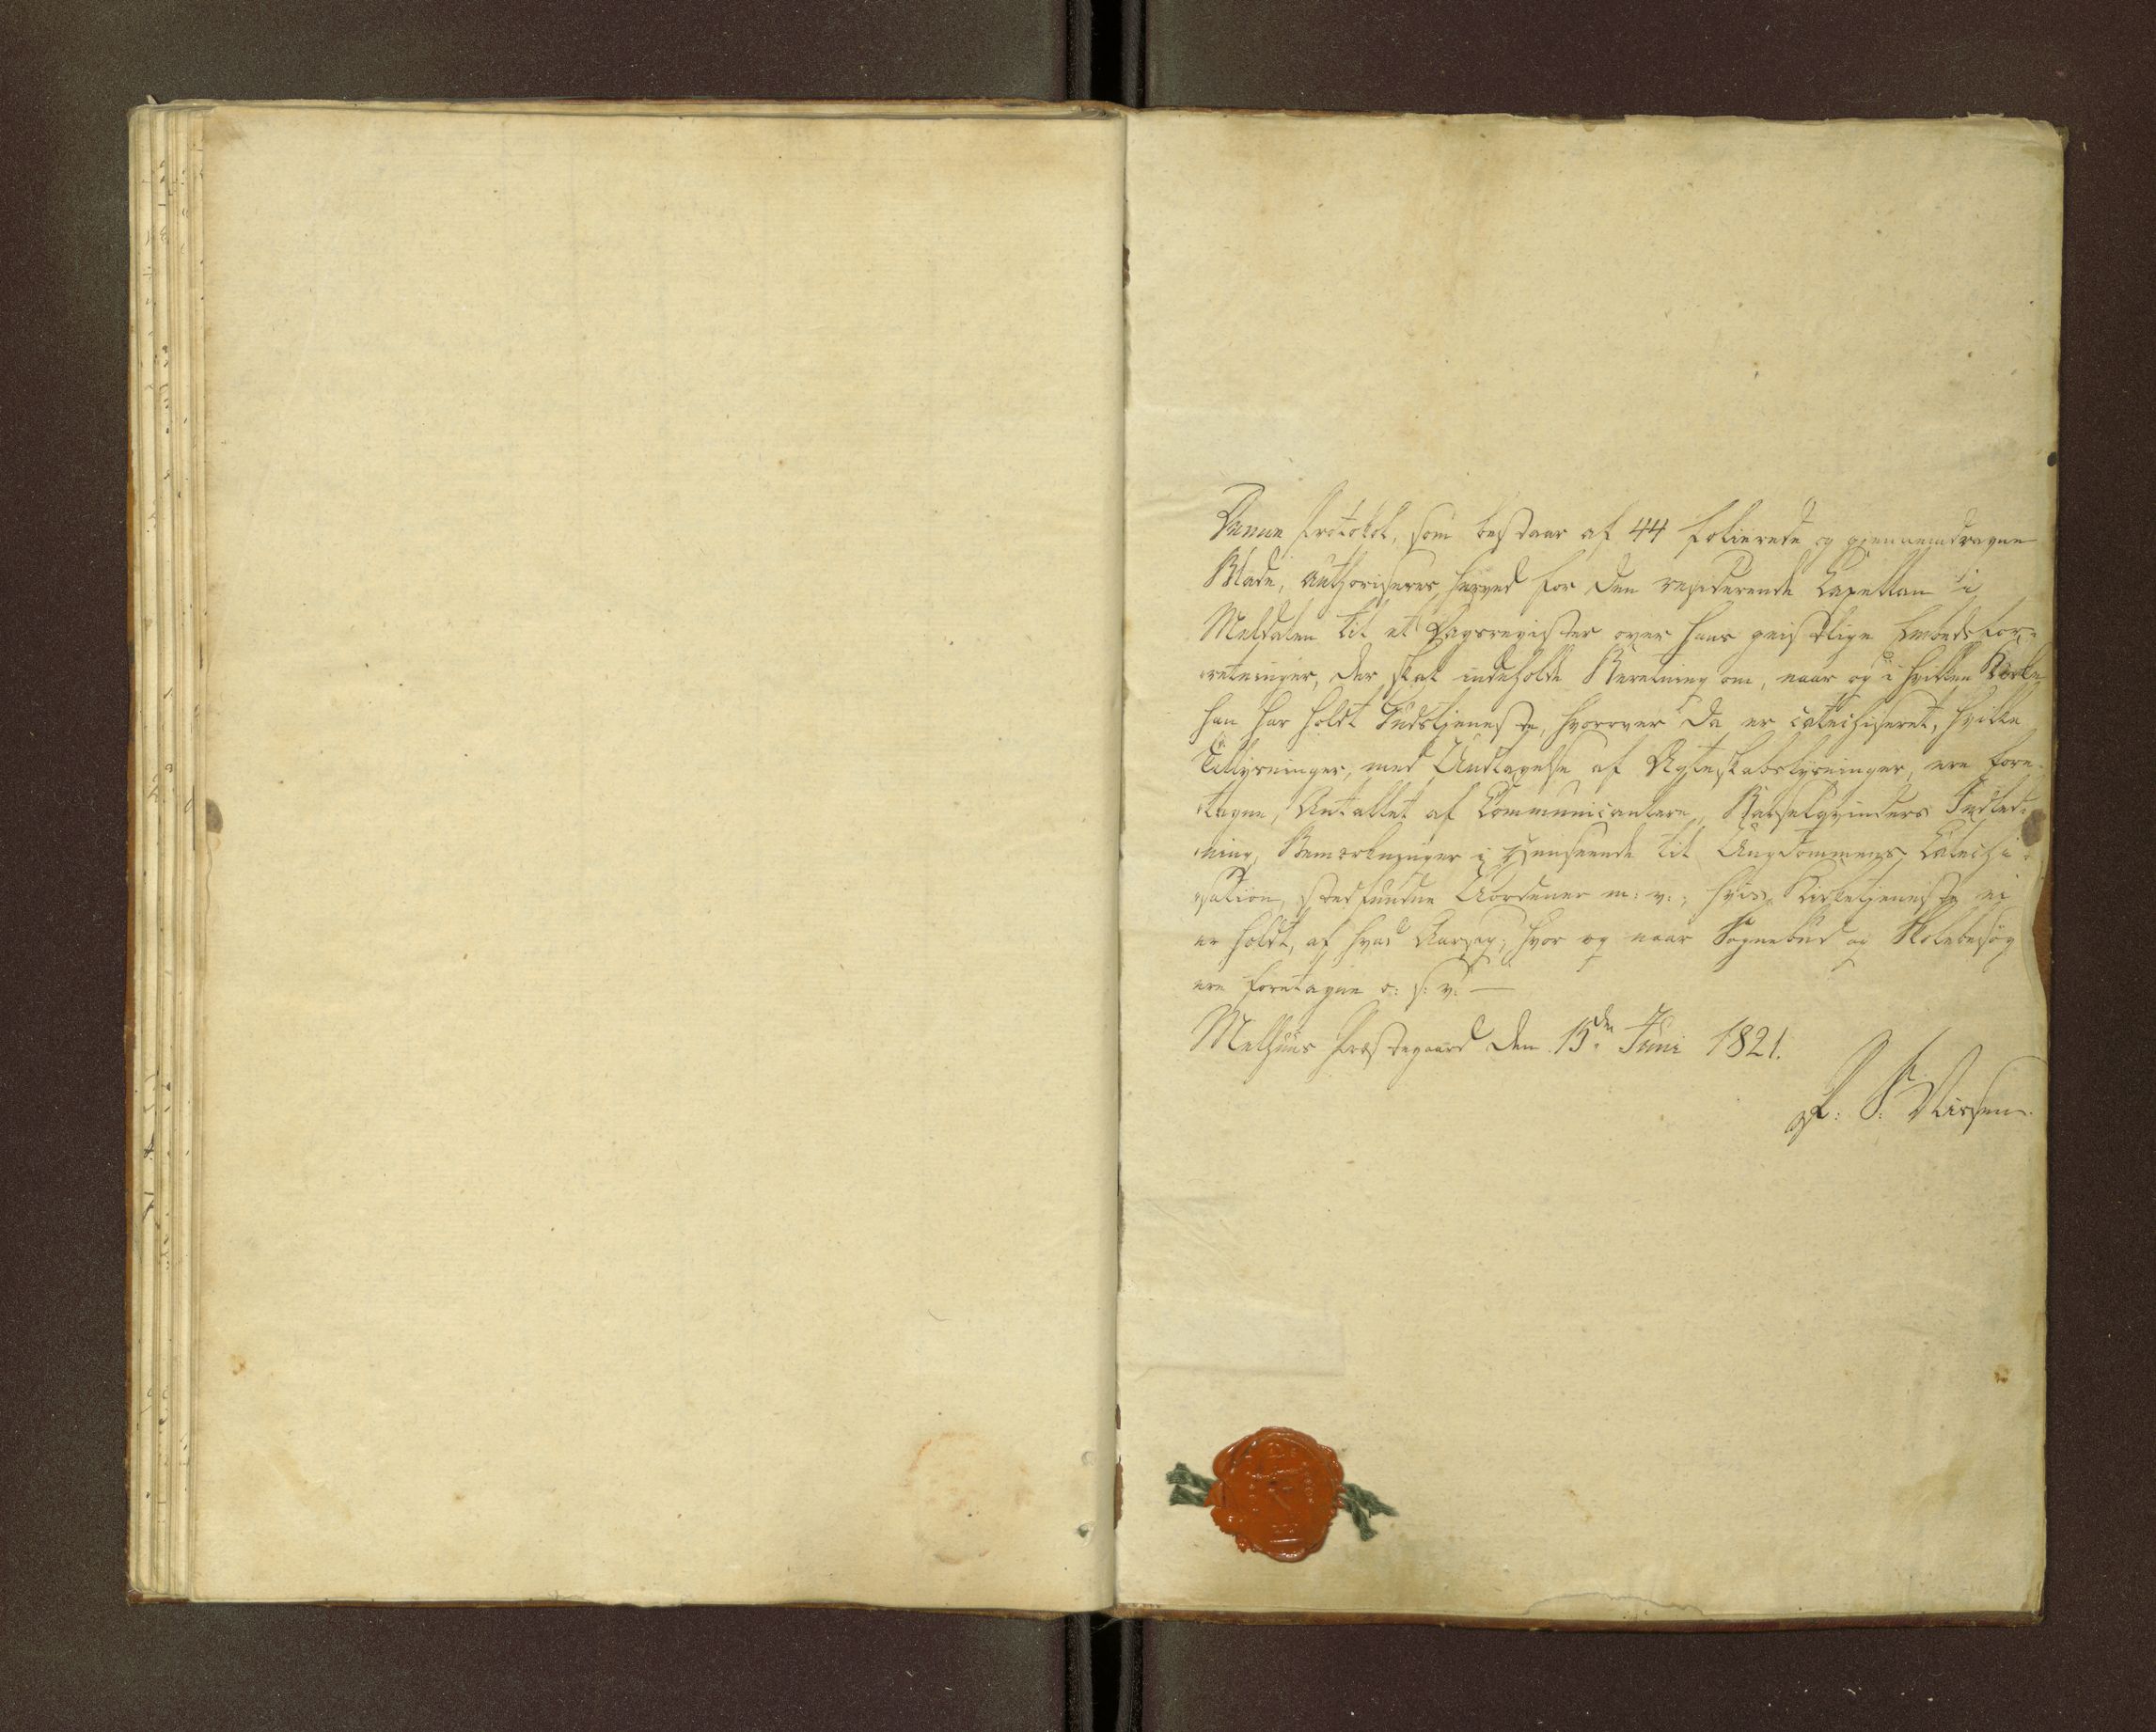 Denne Protokol, som bestaaer af 44 folierede og gjennemdragne
Blade, authoriseres herved for den residerende Capellan i
Meldalen til et Dagsregister over hans geistlige Embedsfor-
retninger, der skal indeholde Beretning om, naar og i hvilken Kirke
han har holdt Gudstjeneste, hvorover da er catechiseret, hvilke
Tillysninger, med Undtagelse af Ægteskabslysninger, ere fore-
tagne, Antallet af Communicantere, Barselqvinders Indled-
ning, Bemærkninger i Henseende til Ungdommens Catechi-
sation, stedfundne Uordener m: v:, hvis Kirketjeneste ei
er holdt, af hvad Aarsag, hvor og naar Sognebud og Skolebesøg
ere foretagne o: s: v: —
Melhuus Præstegaard den 15de Juni 1821.
Nissen.